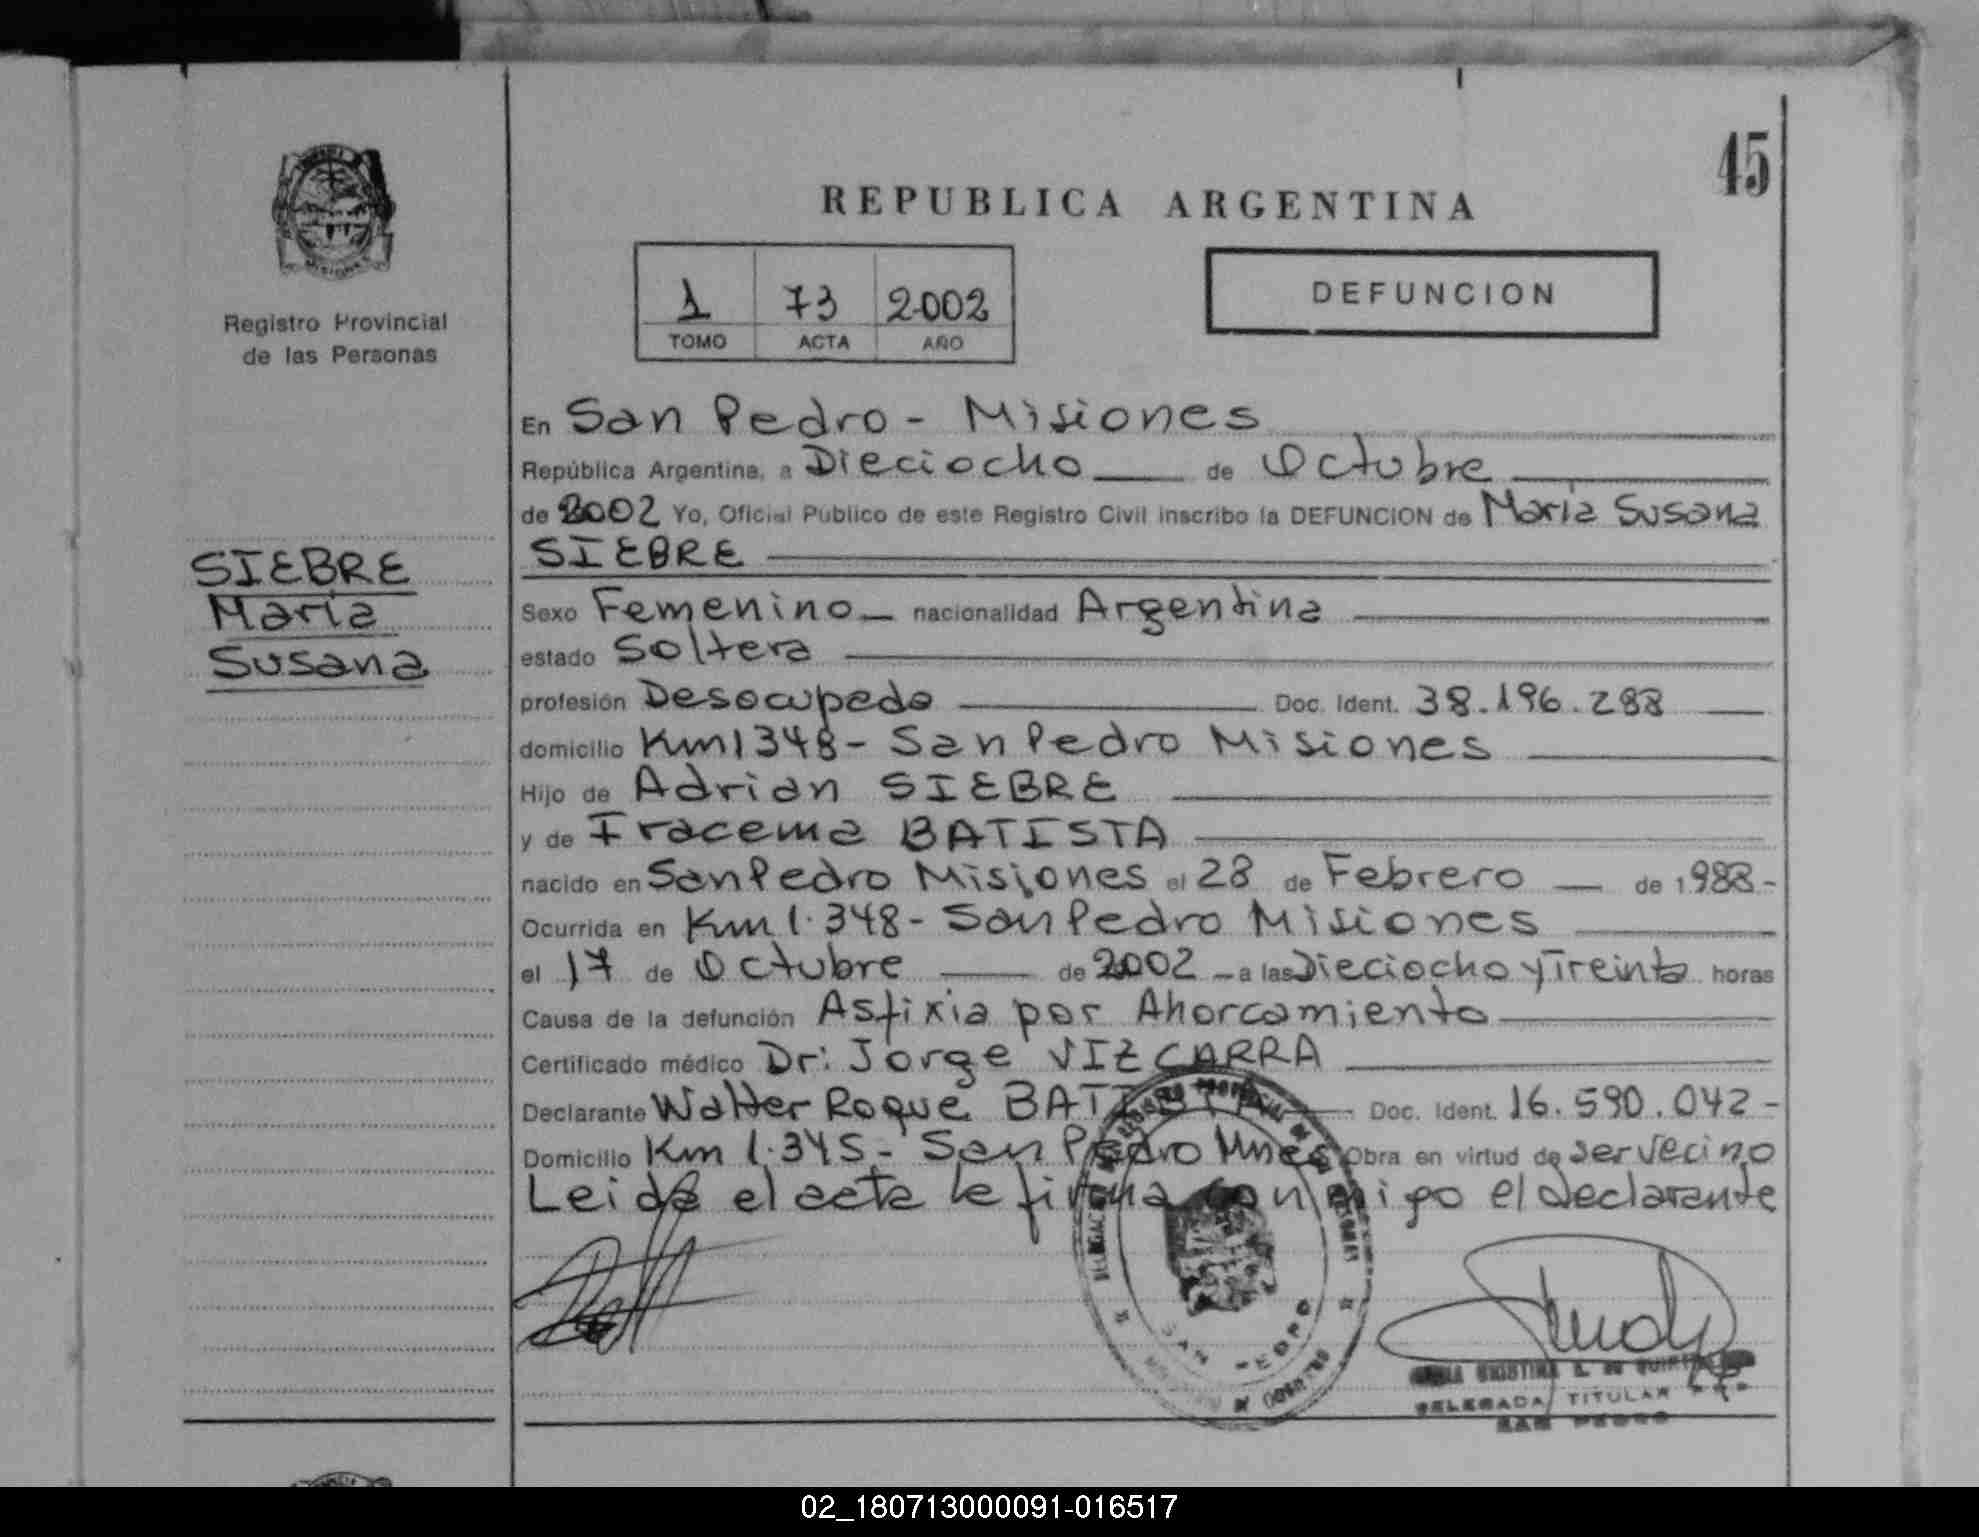 45
REPUBLICA ARGENTINA
Registro Provincial
de las Personas
1 73 2002
TOMO ACTA AÑO
DEFUNCION
SIEBRE
María
Susana
En San Pedro - Misiones
República Argentina, a Dieciocho de Octubre
de 2002 Yo, Oficial Publico de este Registro Civil inscribo la DEFUNCION de María Susana
SIEBRE
Sexo Femenino nacionalidad Argentina
estado Soltera
profesión Desocupada Doc. Ident. 38.196.288
domicilio Km 1348 - San Pedro Misiones
Hijo de Adrian SIEBRE
y de Iracema BATISTA
nacido en San Pedro Misiones el 28 de Febrero de 1988 -
Ocurrida en Km 1.348 - San Pedro Misiones
el 17 de Octubre de 2002 - a las Dieciocho y Treinta horas
Causa de la defunción Asfixia por Ahorcamiento
Certificado médico Dr: Jorge VIZCARRA
Declarante Walter Roque BATISTA Doc. Ident. 16.590.042 -
Domicilio Km 1.345 - San Pedro Mnes Obra en virtud de ser vecino
Leida el acta la firma conmigo el declarante
SAN PEDRO
CRISTINA
DELEGADA TITULAR
SAN PEDRO
02_180713000091-016517